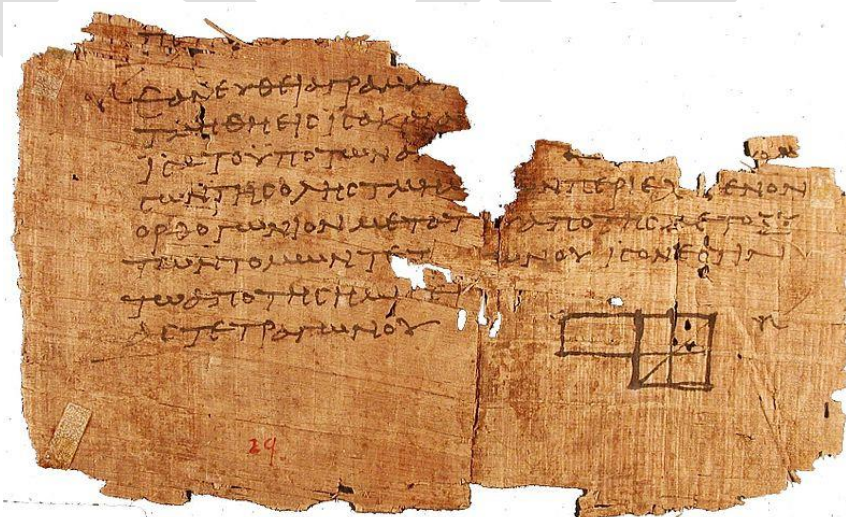 ΕΑΝΕΥΘΕΙΑΓΡΑΜΜ
ΤΜΗΘΗΕΙϹΙϹΑΚΑΙΑΝ
ΙϹΑΤΟΥΠΟΤΩΝΑΝ
ϹΩΝΤΗϹΟΛΗϹΤΜΗΜ ΩΝΠΕΡΙΕΧ ΜΕΝΟΝ
ΟΡΘΟΓΩΝΙΟΝΜΕΤΑΤ ΑΠΟΤΗϹΜΕΤΟΞΥ
ΤΩΝΤΟΜΩΝΤΕΤ ΩΝΟΥΙϹΟΝΕϹΤΙΝ
ΤΩΑΠΟΤΗϹΗΜΙϹΙ
ΑϹΤΕΤΡΑΓΩΝΟΥ
29.